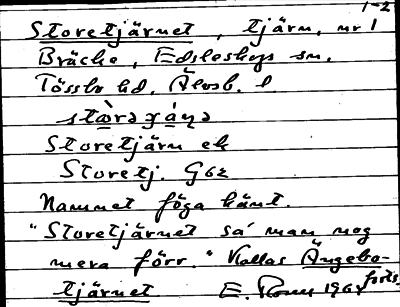 1-2
Storetjärnet, tjärn, nr 1
Bräcke, Edsleskogs sn.
Tössbo hd. Älvsb. l
Storetjärn ek
Storetj. G62
Namnet föga känt.
"Storetjärnet sa man nog
mera förr." Kallas Ängebo-
tjärnet E. 1964 forts.